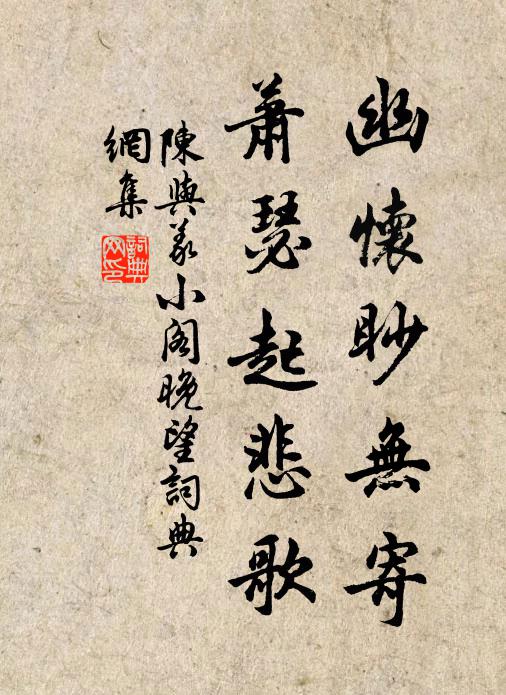 幽懷眇無寄
蕭瑟起悲歌
陳與義小閣晚望詞典
網集
詞典
网印